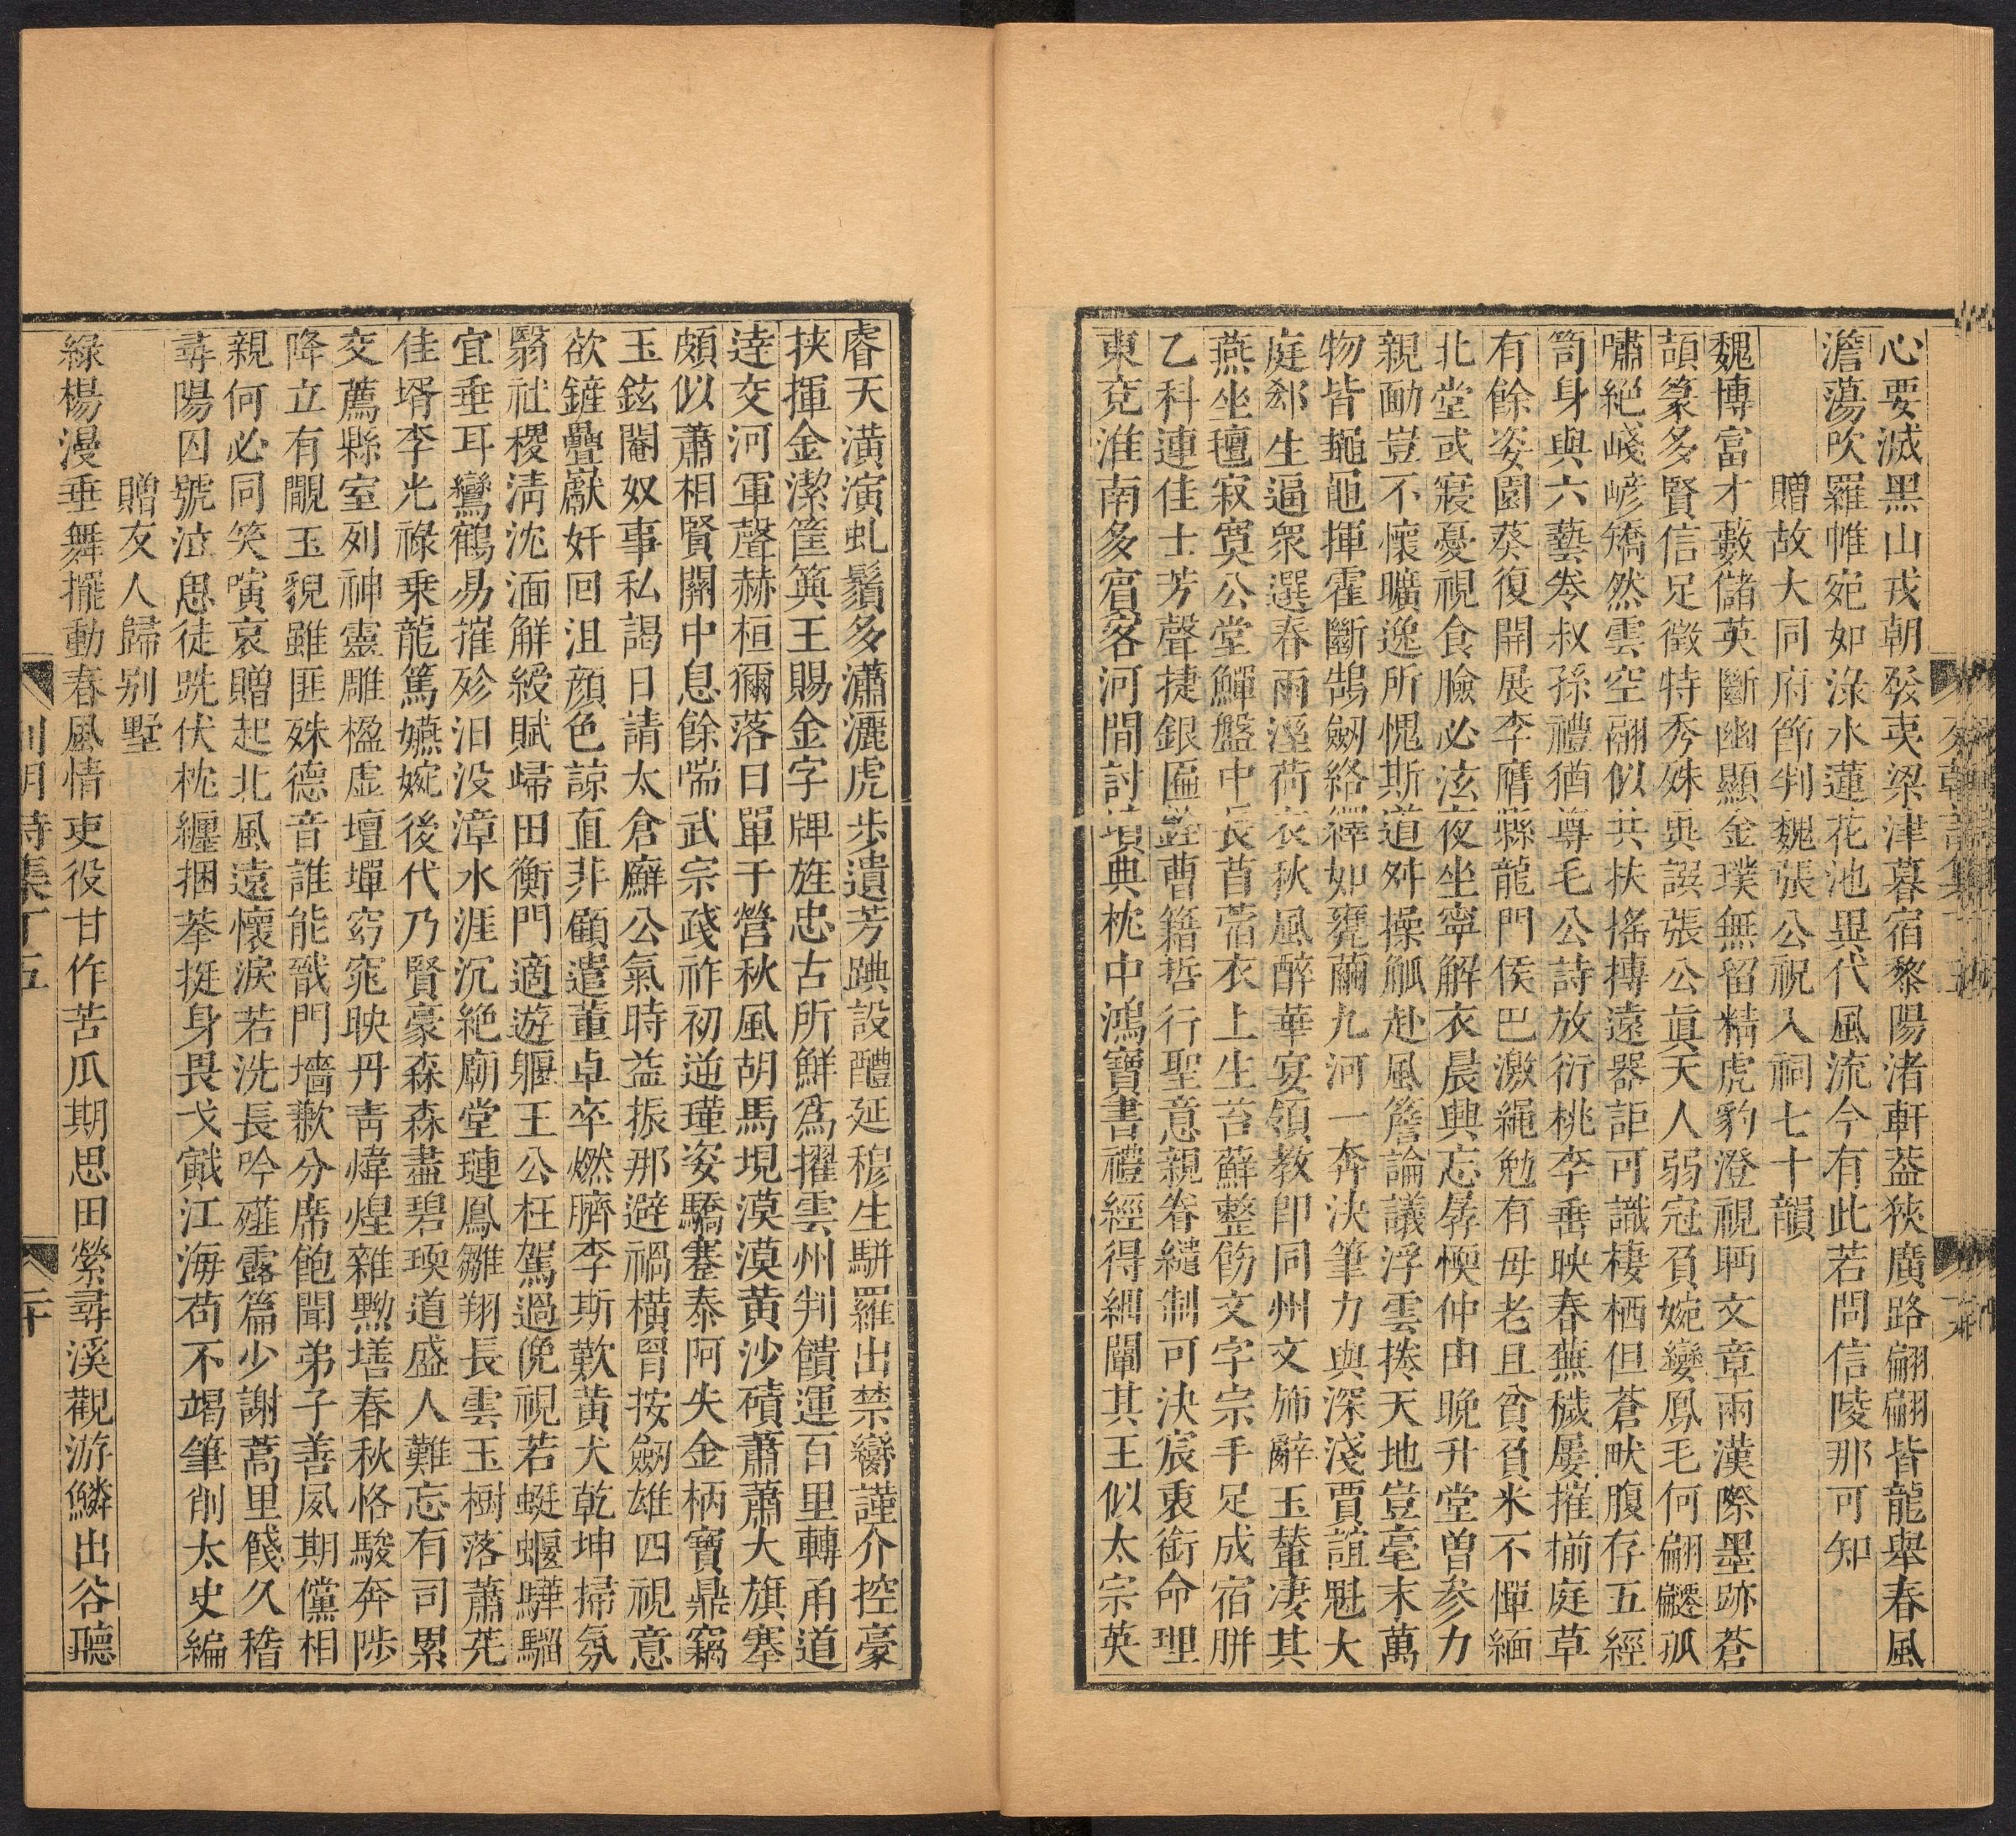 心要滅黑山戎朝發夷梁津暮宿黎陽渚軒蓋狹廣路翩翩皆龍舉春風
澹蕩吹羅帷宛如淥水蓮花池異代風流今有此若問信陵那可知
贈故大同府節判魏張公祝入祠七十韻
魏博富才藪儲英斷幽顯金璞無留精虎豹澄視眄文章兩漢際墨跡蒼
頡篆多賢信足徵特秀殊典誤張公眞天人弱冠負婉孌鳳毛何翩䙴孤
嘯絕巘嵃矯然雲空翮似共扶搖摶遠器詎可識棲栖但蒼畎腹存五經
笥身與六藝卷叔孫禮猶尊毛公詩放衍桃李垂映春蕪穢屢摧揃庭草
有餘姿園葵復開展李膺縣龍門侯巴激繩勉有母老且貧負米不憚緬
北堂或寢憂視食臉必泫夜坐寧解衣晨興忘㬺㬉仲由晚升堂曾參力
親勔豈不懷曠逸所愧斯道舛操觚赴風簷論議浮雲捲天地豈毫末萬
物皆黽黾揮霍斷鵠劒絡繹如甕繭九河一奔決筆力與深淺賈誼魁大
庭郄生逼衆選春雨溼荷衣秋風醉華宴領教卽同州文斾辭玉輦凄其
燕坐氊寂寞公堂鱓盤中長苜蓿衣上生苔蘚整飭文字宗手足成宿胼
乙科連佳士芳聲捷銀匾跧曹籍哲行聖意親眷繾制可決宸衷銜命理
東兗淮南多賓客河間討墳典枕中鴻寶書禮經得綱闡其王似太宗英
睿天潢演虬鬚多瀟灑虎步遺芳蹟設醴延穆生駢羅出禁臠謹介控豪
挾揮金潔筐篚王賜金字牌旌忠古所鮮爲擢雲州判饋運百里轉甬道
逹交河軍聲赫桓彌落日單于營秋風胡馬垷漠漠黃沙磧蕭蕭大旗搴
頗似蕭相賢關中息餘喘武宗踐祚初逆瑾姿驕蹇泰阿失金柄寶鼎竊
玉鉉閹奴事私謁日請太倉廨公氣時益振那避禍橫罥按劒雄四視意
欲鏟疊巘奸回沮顏色諒直非顧遣董卓卒燃臍李斯歎黃犬乾坤掃氛
翳社稷淸沈湎解綬賦歸田衡門適遊䠥王公枉駕過俛視若蜓蝘驊騮
宜垂耳鸞鶴易摧殄汨没漳水涯沉絕廟堂璉鳳雛翔長雲玉樹落蕭𦬁
佳壻李光祿乗龍篤嬿婉後代乃賢豪森森盡碧瑌道盛人難忘有司累
交薦縣室列神靈雕楹虚壇墠窈窕映丹靑煒煌雜黝墡春秋恪駿奔陟
降立有覵玉貌雖匪殊德音誰能戩門墻歉分席飽聞弟子善夙期儻相
親何必同笑嚬哀贈起北風遠懷淚若洗長吟薤露篇少謝蒿里餞久稽
尋陽囚號泣思徒跣伏枕纏捆䇯挺身畏戈戭江海苟不竭筆削太史編
贈友人歸别墅
綠楊漫垂舞擺動春風情吏役甘作苦瓜期思田縈尋溪觀游鱗出谷聽
列朝詩集丁五
二十